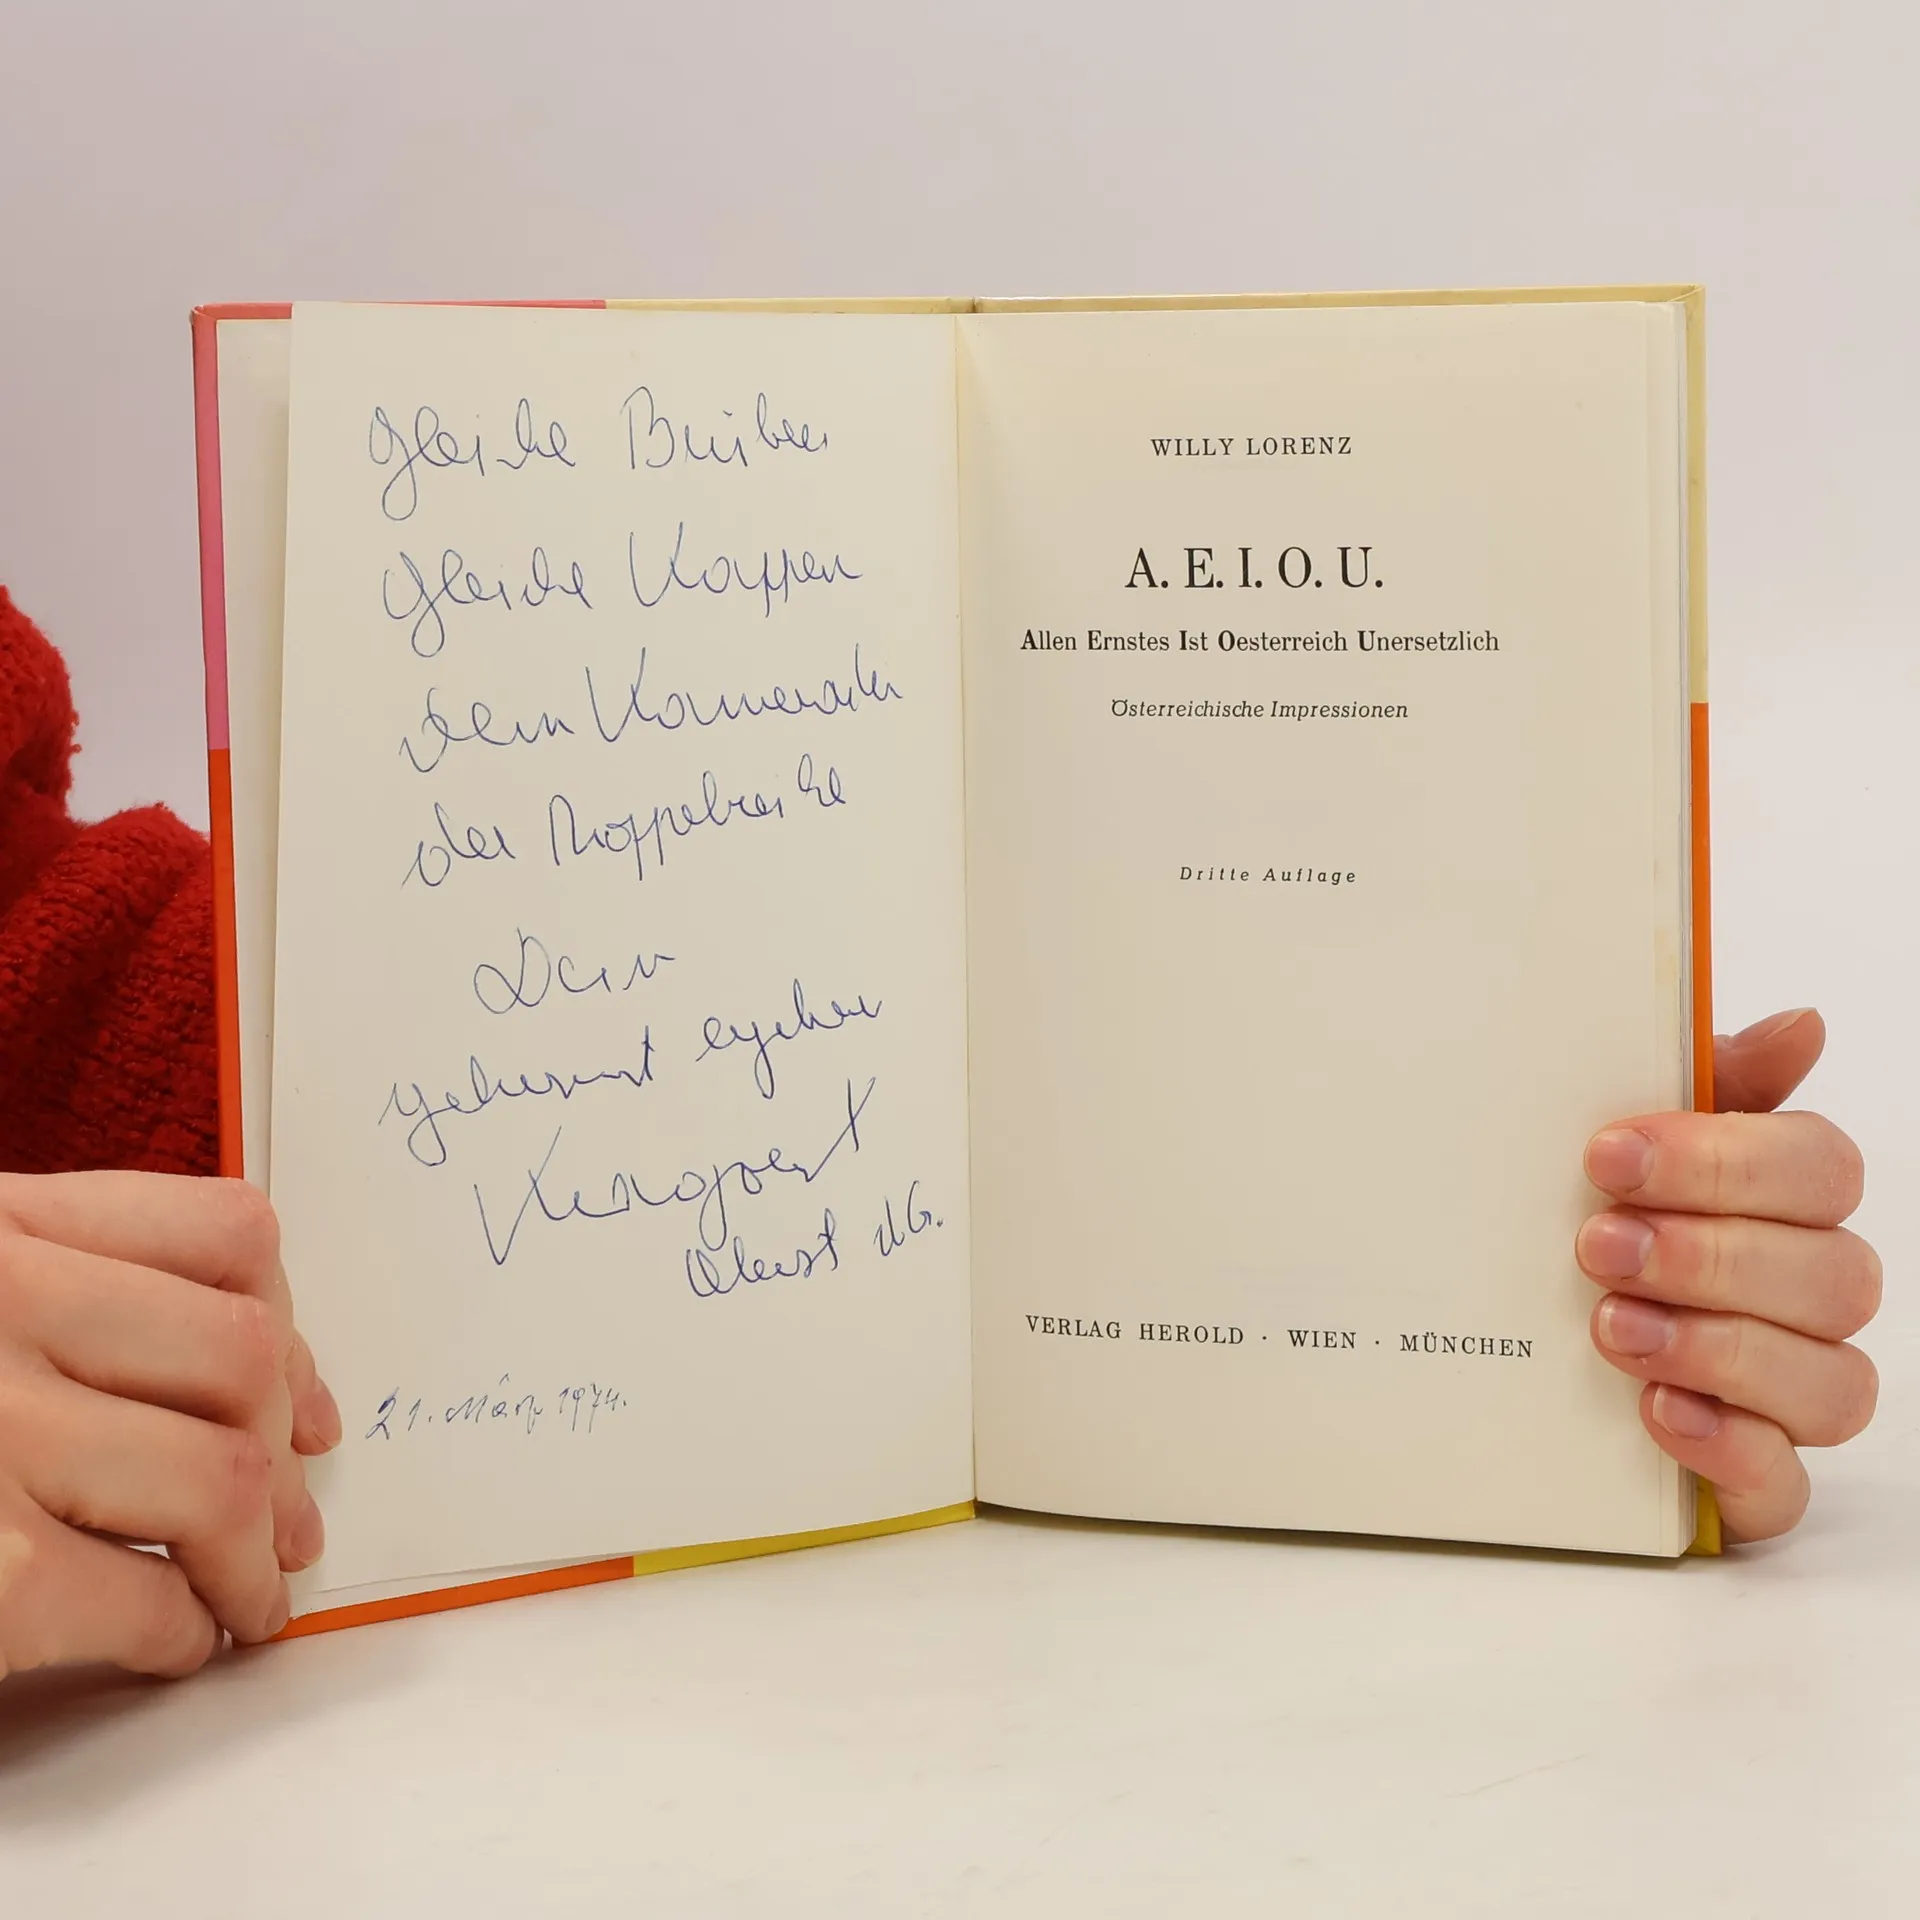 Gleiche Brüder
gleiche Kappen
dem Kameraden
der Doppelreihe
Dein
gehorsamst ergebener
Oberst dG.
21. März 1974.
WILLY LORENZ
A. E. I. O. U.
Allen Ernstes Ist Oesterreich Unersetzlich
Österreichische Impressionen
Dritte Auflage
VERLAG HEROLD · WIEN · MÜNCHEN